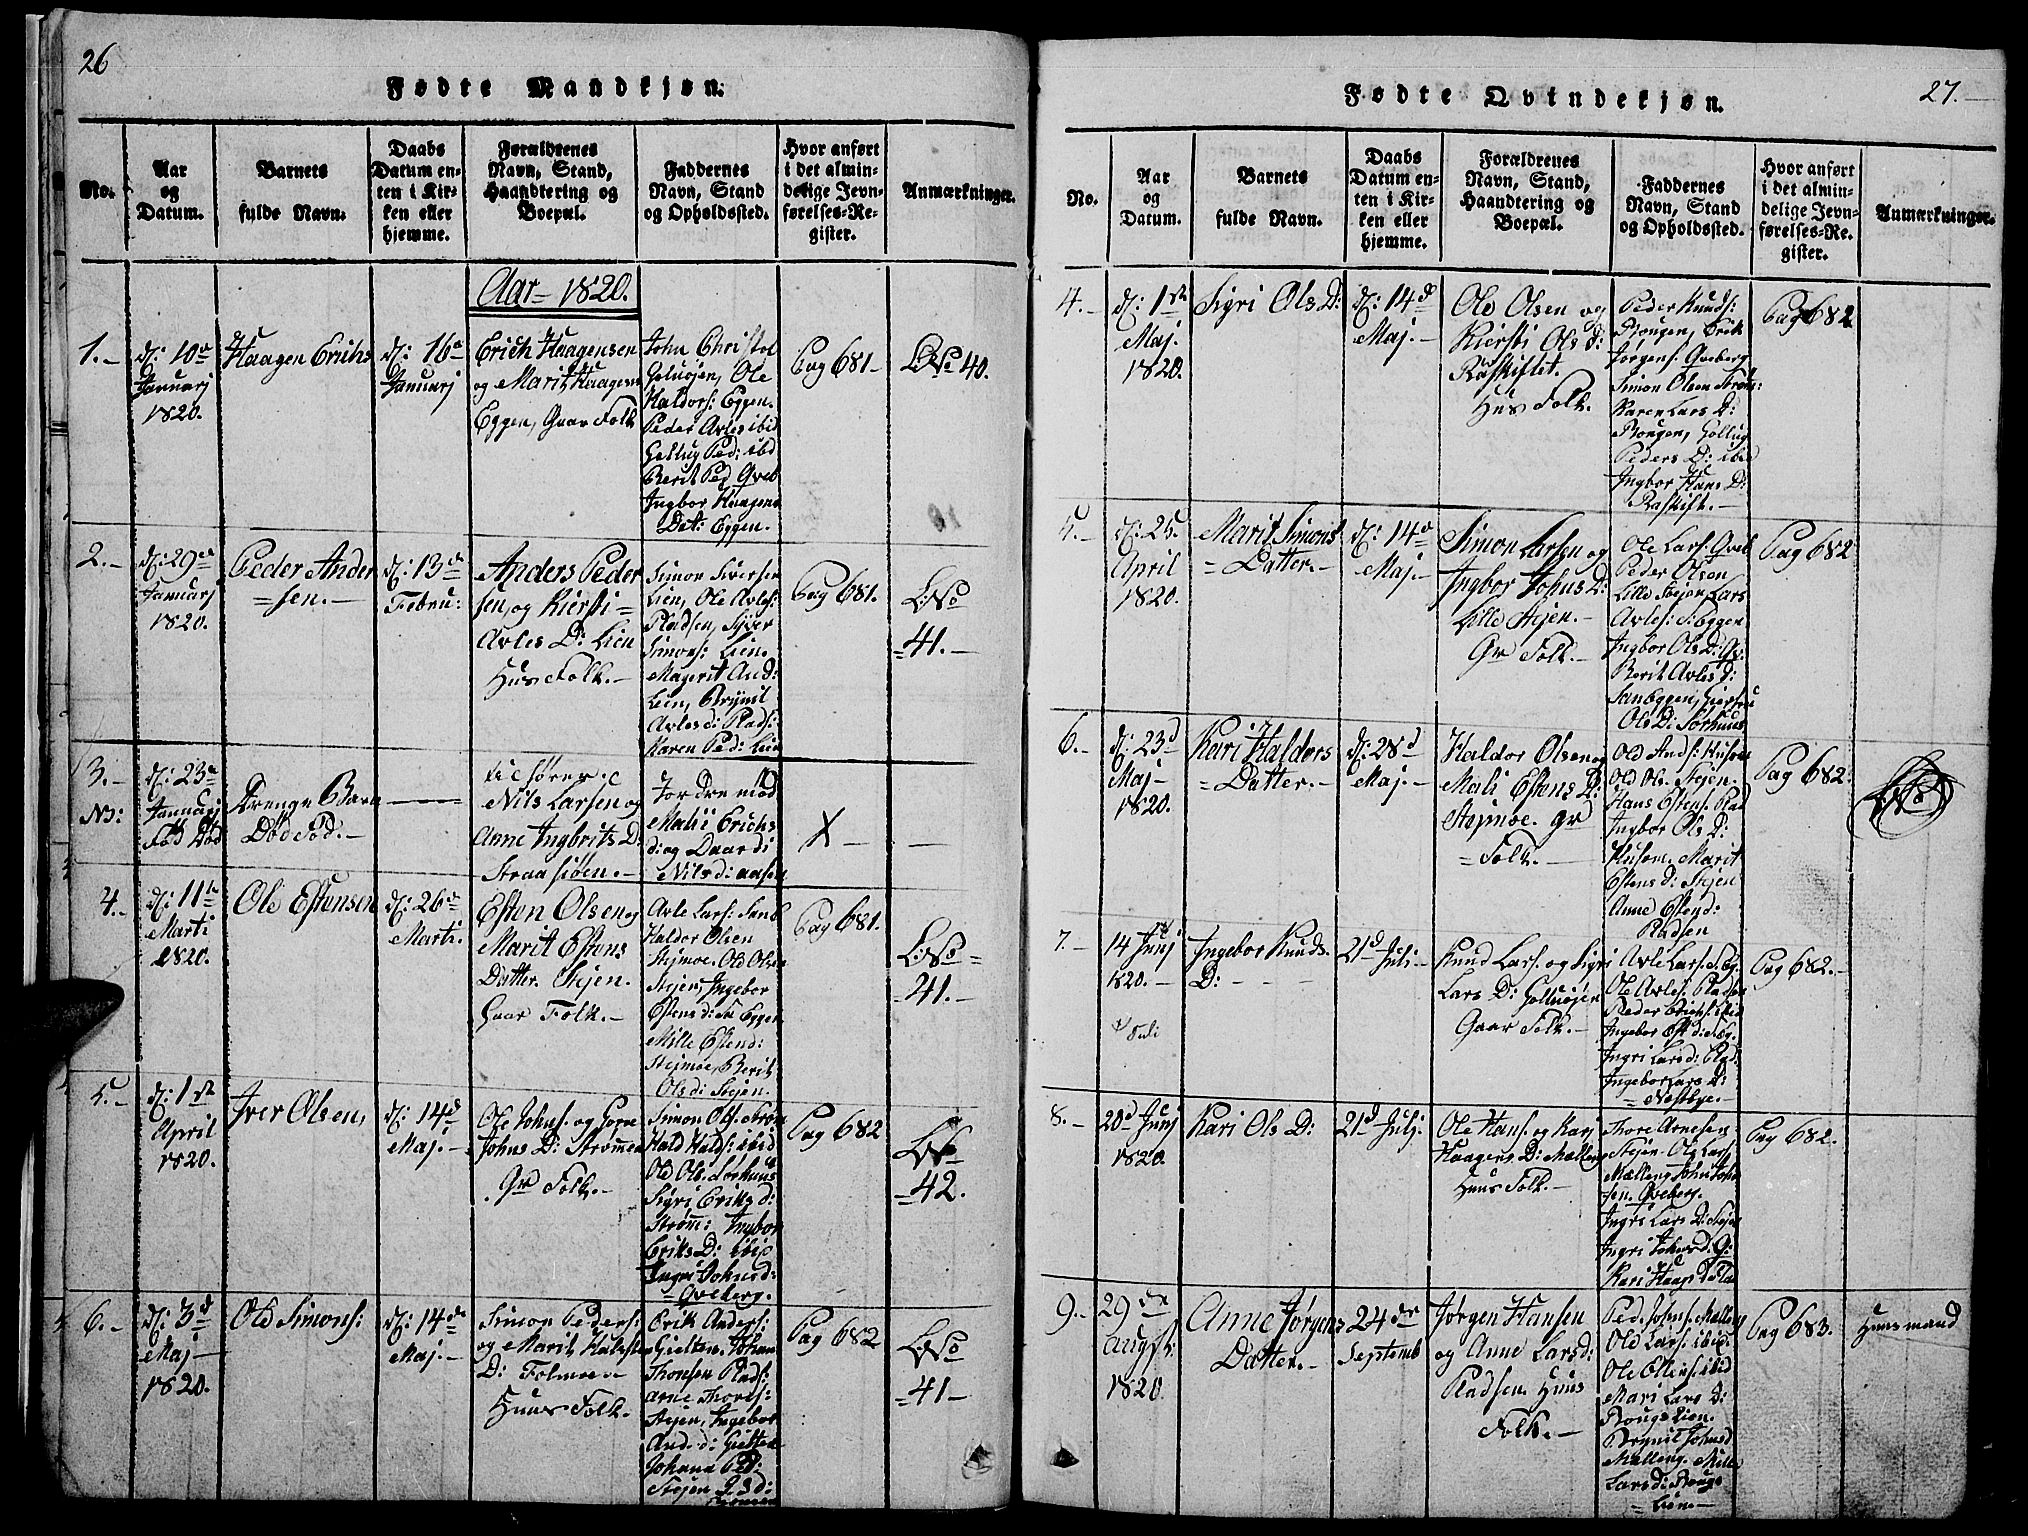 26
Fødte Mandkjøn.
No.
Aar
og
Datum.
Barnets
fulde Navn.
Daabs
Datum en-
ten i Kir-
ken eller
hjemme.
Forældrenes
Navn, Stand,
Haandtering og
Boepæl.
Faddernes
Navn, Stand
og Opholdssted.
Hvor anført
i det almin-
delige Jevn-
førelses-Re-
gister.
Anmærkninger.
Aar- 1820.
1.-
d: 10de
Januarj
1820.
Haagen Erichs
d: 16de
Januarj
Erich Haagensen
og Marit Haagens
Eggen, Gaar Folk
John Christof
Ole
Haldors: Eggen.
Peder Avles ibid
Gollug Ped: ibd
Berit Ped Qveb
Ingbor Haagens
Dat: Eggen.
Pag 681-
LNo 40.
2.-
d: 29de
Januarj
1820.
Peder Ander
=sen.-
d: 13de
Febru:
Anders Peder
sen, og Kiersti=
Avles D: Lien
Hus Folk.-
Simon Siversen
Lien, Ole Avles:
Pladsen, Siver
Simons: Lien.
Magerit And:
Lien, Brynil
Avles d: Plads:
Karen Ped: Lien
Pag 681.
LNo
=41.-
3.-
No:
d: 23de
Januarj
Fød Død
Drenge Barn
Død Fød.-
Nils Larsen og
Anne Ingbrits D:
Straasiøen.-
Jordremod
Mali Erichs
d: og Daardi
Nils d: aasen
X -
4.-
d: 11te
Marti
1820.
Ole Estensen
d: 26de
Marti.
Esten Olsen og
Marit Estens
Datter. Stejen.
Gaar Folk.-
Avle Lars:
Haldor Olsen
Stejmoe. Ole Olsen
Stejen, Ingebor
Estens d: Eggen
Mille Estend:
Stejmoe, Berit
Ols d: Stejen.
Pag 681.
LNo=
=41.-
5.-
d: 1ste
April
1820.
Iver Olsen,
d: 14d
Maj.-
Ole Johns: og Gore
Johns D: Strømen
Gr Folk.-
Simon Ols: Strøm
Hald Hald: ibid
Ole Ols: Sorhuus
Sigri Eriks d:
Strøm: Ingbor
Eriks D: ibid
Ingri Johns d:
=Qveberg.
Pag 682
LNo
=42.
6.-
d: 3d
Maj
1820.
Ole Simons:
d: 14de
Maj.-
Simon Peders:
og Marit
D: Folmoe.-
Huus Folk.
Erik Anders:
Gielten, Johan
Thonsen Plads:
Arne Thores:
Stejen, Ingebor
And. d: Gielten
Johana Ped:
Stejen
Pag 682
LNo
=41-
27.-
Fødte Qvindekjøn.
No.
Aar
og
Datum.
Barnets
fulde Navn.
Daabs
Datum en-
ten i Kir-
ken eller
hjemme.
Forældrenes
Navn, Stand,
Haandtering og
Boepæl.
Faddernes
Navn, Stand
og Opholdssted.
Hvor anført
i det almin-
delige Jevn-
førelses-Re-
gister.
Anmærkninger.
4.-
d: 1ste
Maj.
1820.
Sigri Ols D:
d: 14d
Maj.-
Ole Olsen og
Kiersti Ols d:
Råskiftet.
Hus Folk.
Peder Knuds:
Bougen, Erik
Jørgens: Qveberg
Simon Olsen Strøm:
Karen Lars D:
Bougen, Gollug
Peders D: ibid
Ingbor Hans D:
Raskift.-
Pag 682
5.-
d: 25.
April
1820.
Marit Simons
=Datter.-
d: 14de
Maj.-
Simon Larsen og
Ingbor Johns D:
Lille Stejen.-
Gr Folk.-
Ole Lars: Qveb
Peder Olsen
Lille Stejen, Lars
Avles: S: Eggen
Ingbor Ols D: Qv:
Berit Avles d:
Ols D: Sorhuus
Pag 682
6.-
d: 23d
Maj-
1820.
Kari Haldors
=Datter.-
d: 28d
Maj.-
Haldor Olsen og
Mali Estens D:
Stejmoe. gr
=Folk.-
Ole And:
Ole Ols: Stejen.
Hans Estens: Plad
Ingbor Ols D:
Husom. Marit
Estens d: Stejen
Anne Estend:
Pladsen
Pag 682.
LNo
7.-
14 Junj
1820.
Juli
Ingebor Knuds.
D: - - -
21d Juli-
Knud Lars: og Sigri
Lars D:
Gaar Folk.-
Avle Lars: S: Eg.
Ole Avles: Pladsen
Peder Erichs: ibid
Ingebor Est d:
Ingri Lars d: Plad:
Ingebor Lars D:
=Nestbye.-
Pag 682.-
8.-
20d Junj
1820.
Kari Ols D:
21d Julj.
Ole Hans: og Kari
Haagens D: Mælleng
Huus Folk.-
Thore Arnesen
Stejen. Ole Lars
Mælleng John John
sen. Qveberg.
Ingri Lars D: Stejen
Ingri Johns d: Q:
Kari
Pag 682.
9.-
29de
Augst:
1820
Anne Jørgens
Datter.-
24de
Septemb
Jørgen Hansen
og Anne Lars d:
Pladsen Huus
Folk.-
Ped: Johns: Mælleng
Ole Lars: ibid:
Ole Ellens: ibid
Mari Lars D:
Bougslien.
Brynil Johnsd
Mælleng. Mille
Lars d: Bougs
=lien.-
Pag 683.
Huusmand